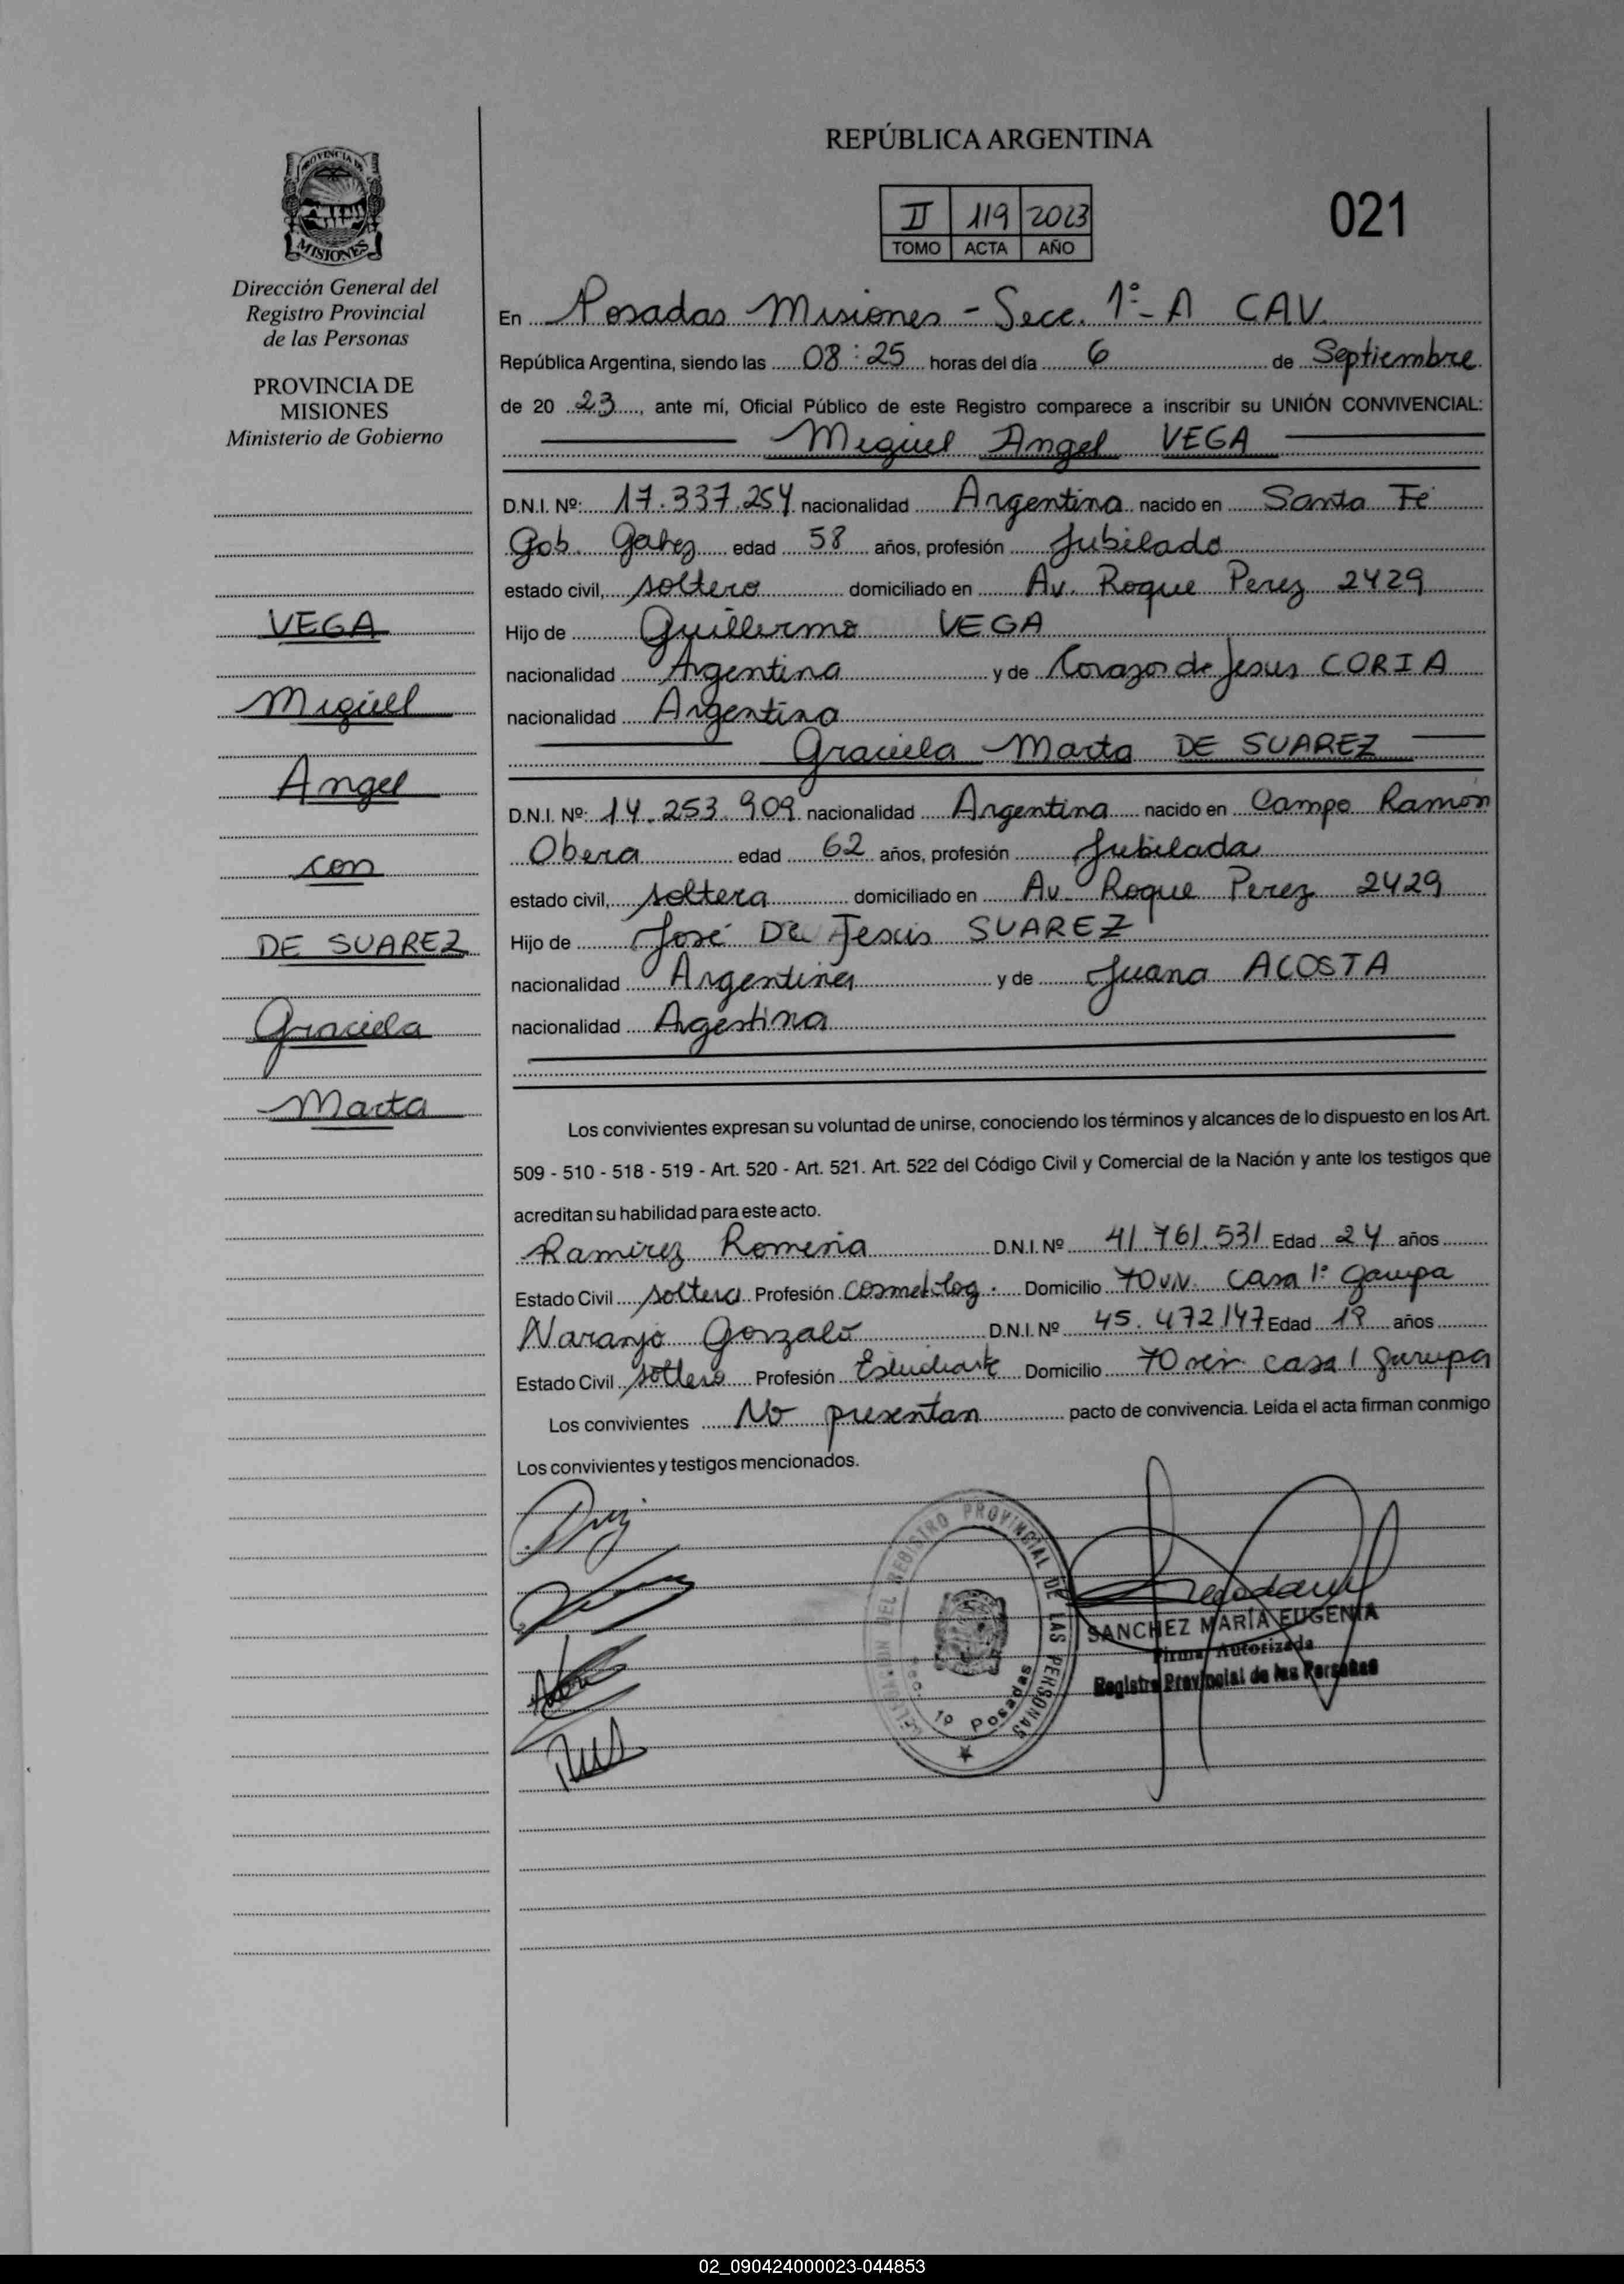 REPÚBLICA ARGENTINA
PROVINCIA DE
MISIONES
II 119 2023
TOMO ACTA AÑO
021
Dirección General del
Registro Provincial
de las Personas
PROVINCIA DE
MISIONES
Ministerio de Gobierno
VEGA
Miguel
Angel
con
DE SUAREZ
Graciela
Marta
En Posadas Misiones - Secc. 1º - A CAV.
República Argentina, siendo las 08:25 horas del día 6 de Septiembre
de 20 23, ante mí, Oficial Público de este Registro comparece a inscribir su UNIÓN CONVIVENCIAL:
Miguel Angel VEGA
D.N.I. Nº: 17.337.254 nacionalidad Argentina nacido en Santa Fé
Gob. Galvez edad 58 años, profesión Jubilado
estado civil, soltero domiciliado en Av. Roque Perez 2429
Hijo de Guillermo VEGA
nacionalidad Argentina y de Corazon de Jesus CORIA
nacionalidad Argentina
Graciela Marta DE SUAREZ
D.N.I. Nº: 14.253.909 nacionalidad Argentina nacido en Campo Ramón
Obera edad 62 años, profesión Jubilada
estado civil, soltera domiciliado en Av. Roque Perez 2429
Hijo de José De Jesus SUAREZ
nacionalidad Argentina y de Juana ACOSTA
nacionalidad Argentina
Los convivientes expresan su voluntad de unirse, conociendo los términos y alcances de lo dispuesto en los Art.
509 - 510 - 518 - 519 - Art. 520 - Art. 521. Art. 522 del Código Civil y Comercial de la Nación y ante los testigos que
acreditan su habilidad para este acto.
Ramirez Romina D.N.I. Nº 41.761.531 Edad 24 años
Estado Civil soltera Profesión Cosmetolog. Domicilio 70 viv. casa 1º Garupa
Naranjo Gonzalo D.N.I. Nº 45.472.147 Edad 19 años
Estado Civil soltero Profesión Estudiante Domicilio 70 viv casa 1 Garupa
Los convivientes No presentan pacto de convivencia. Leída el acta firman conmigo
Los convivientes y testigos mencionados.
DEL REGISTRO PROVINCIAL DE LAS PERSONAS
Sec. 1º Posadas
SANCHEZ MARÍA EUGENIA
Firma Autorizada
Registro Provincial de las Personas
02_090424000023-044853